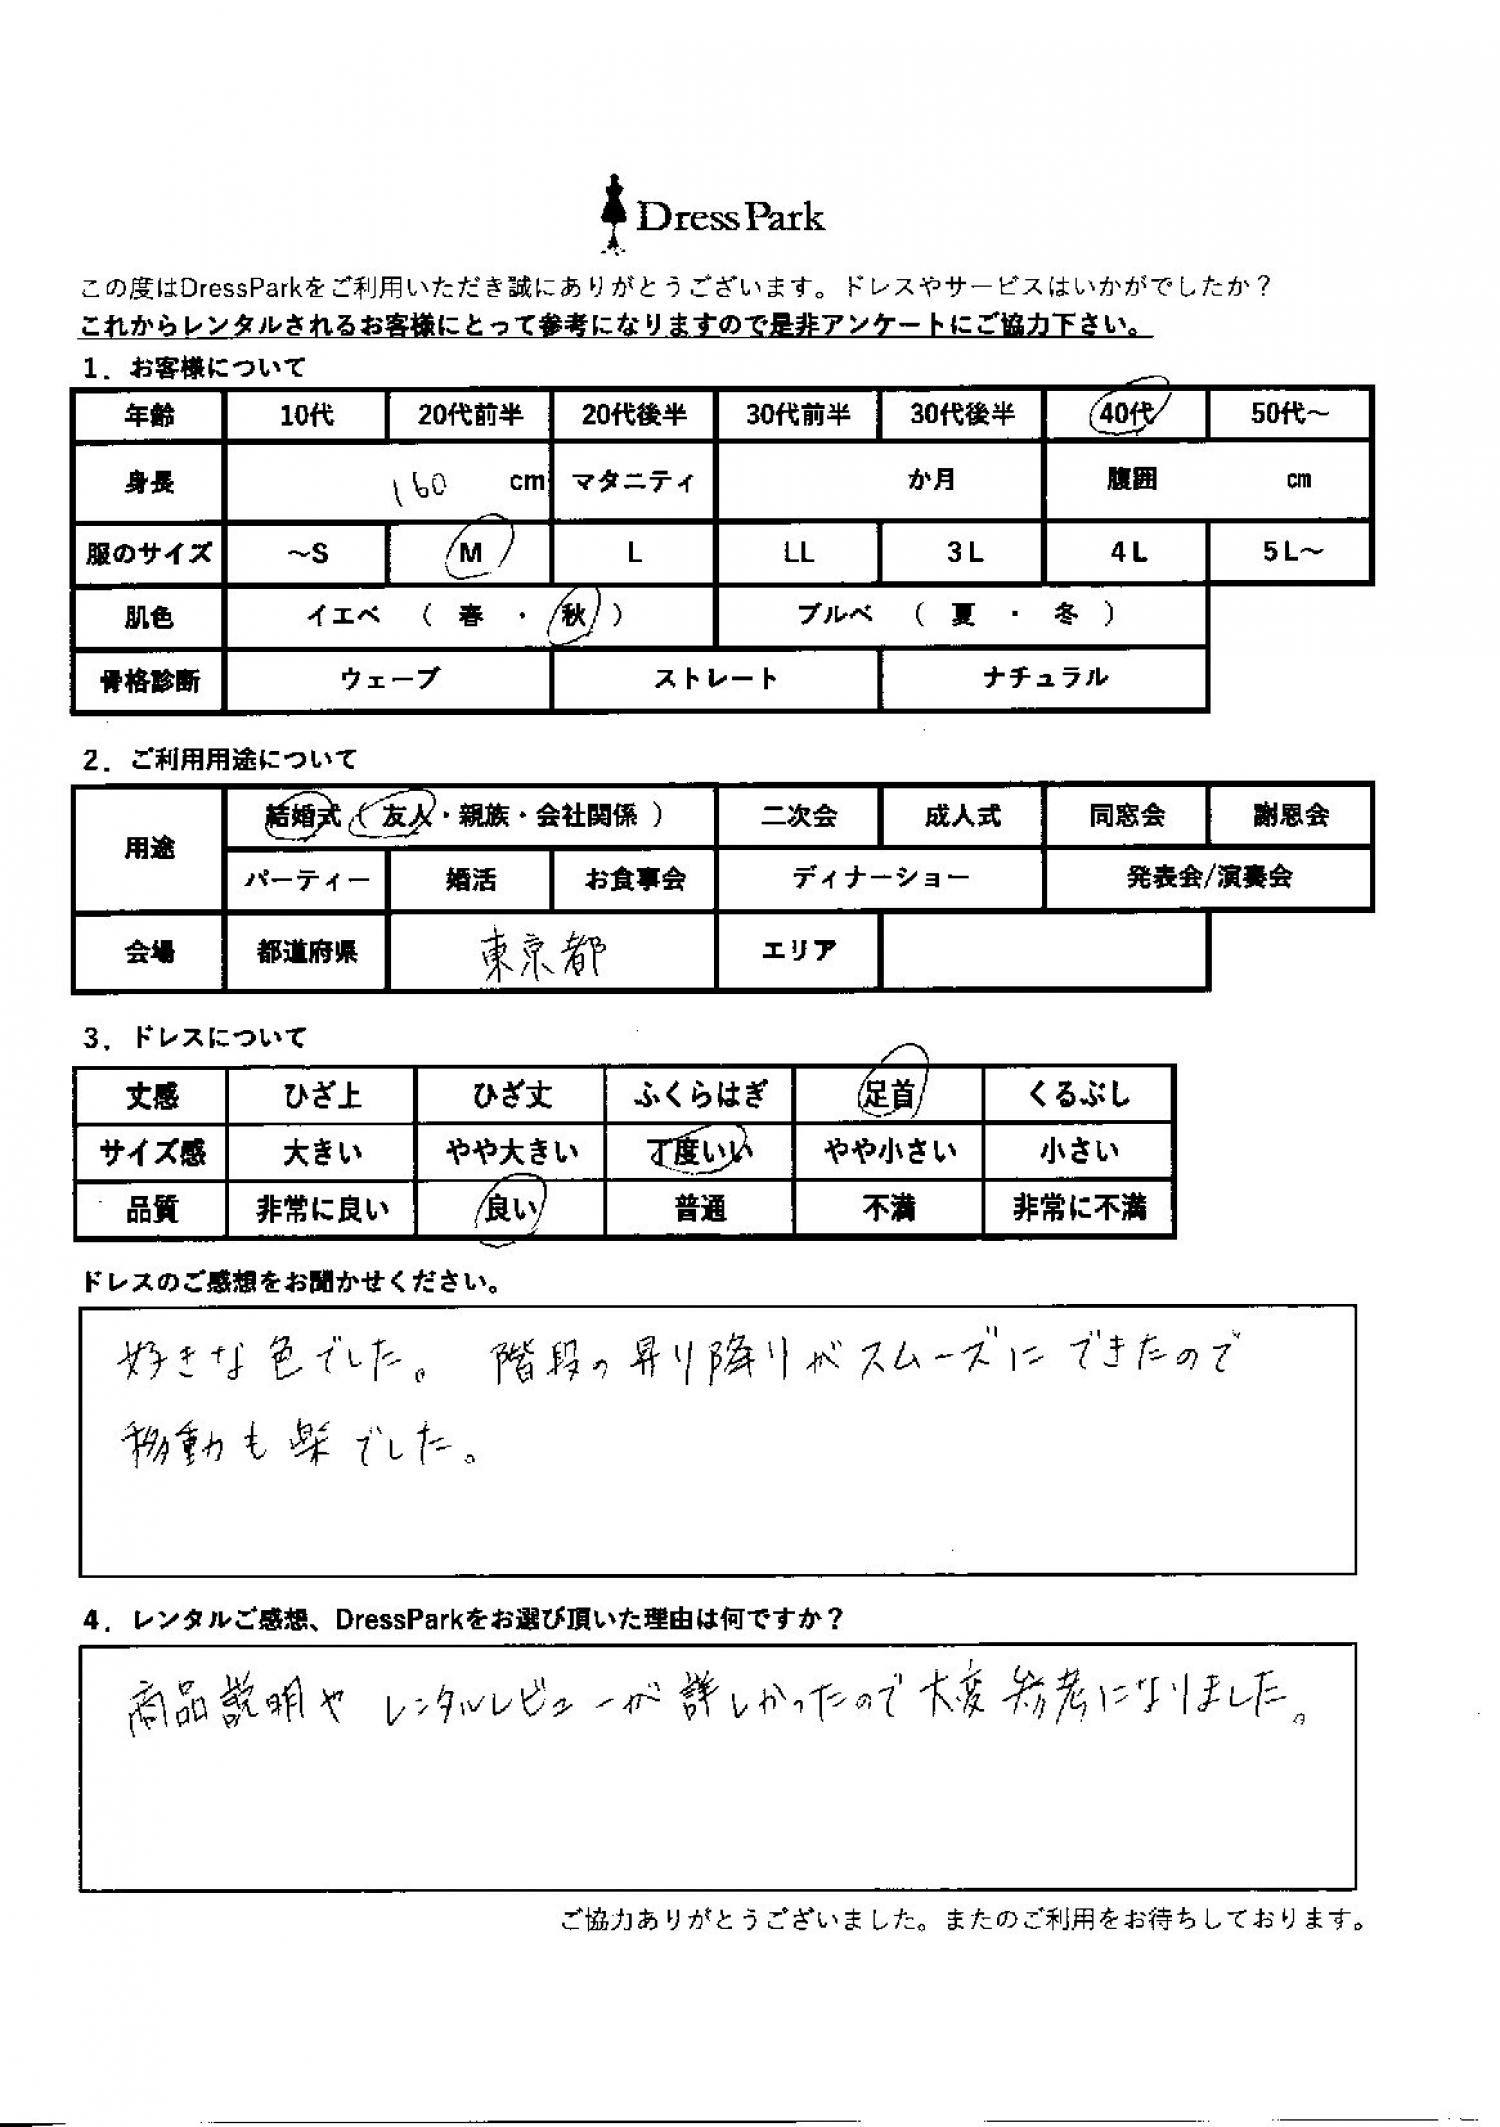 DressPark
この度はDressParkをご利用いただき誠にありがとうございます。ドレスやサービスはいかがでしたか？
これからレンタルされるお客様にとって参考になりますので是非アンケートにご協力下さい。
1．お客様について
年齢 10代 20代前半 20代後半 30代前半 30代後半 40代 50代～
身長 160 cm マタニティ か月 腹囲 cm
服のサイズ ～S M L LL 3L 4L 5L～
肌色 イエベ （ 春 ・ 秋 ） ブルベ （ 夏 ・ 冬 ）
骨格診断 ウェーブ ストレート ナチュラル
2．ご利用用途について
用途 結婚式（ 友人・親族・会社関係 ） 二次会 成人式 同窓会 謝恩会
パーティー 婚活 お食事会 ディナーショー 発表会/演奏会
会場 都道府県 東京都 エリア
3．ドレスについて
丈感 ひざ上 ひざ丈 ふくらはぎ 足首 くるぶし
サイズ感 大きい やや大きい 丁度いい やや小さい 小さい
品質 非常に良い 良い 普通 不満 非常に不満
ドレスのご感想をお聞かせください。
好きな色でした。 階段の昇り降りがスムーズにできたので
移動も楽でした。
4．レンタルご感想、DressParkをお選び頂いた理由は何ですか？
商品説明や レンタルレビューが詳しかったので大変参考になりました。
ご協力ありがとうございました。またのご利用をお待ちしております。